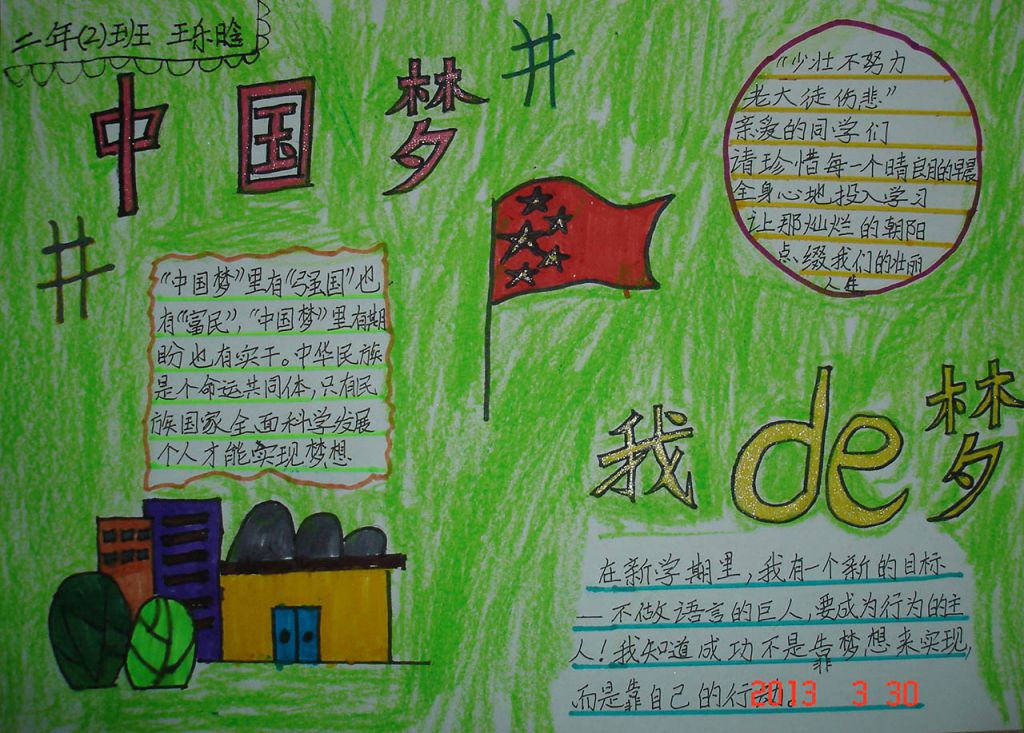 二年(2)班 王乐晗
中国梦
"少壮不努力
老大徒伤悲"
亲爱的同学们
请珍惜每一个晴朗的早晨
全身心地投入学习
让那灿烂的朝阳
点缀我们的壮丽
人生
"中国梦"里有"强国"也
有"富民","中国梦"里有期
盼也有实干。中华民族
是个命运共同体,只有民
族国家全面科学发展
个人才能实现梦想
我de梦
在新学期里,我有一个新的目标
—不做语言的巨人,要成为行为的主
人!我知道成功不是靠梦想来实现,
而是靠自己的行动。
2013 3 30